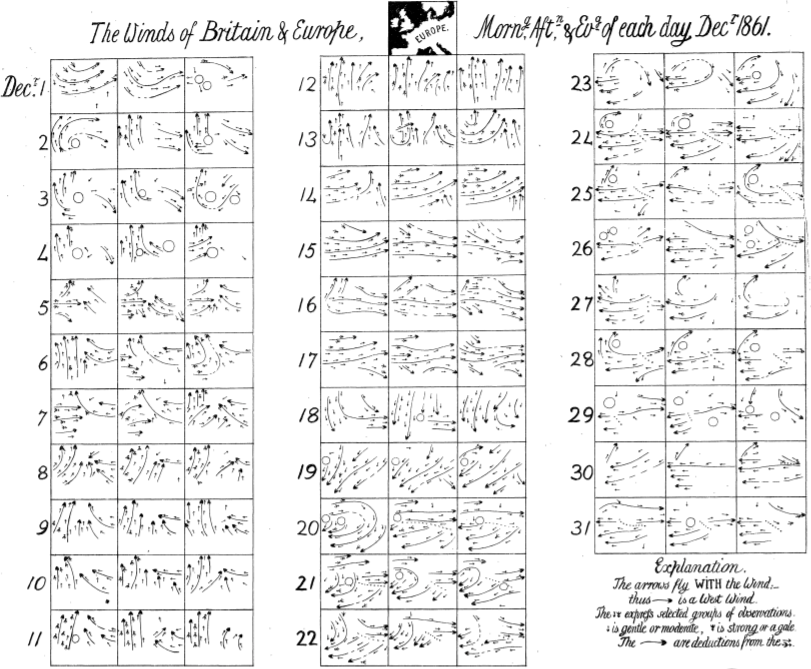 The Winds of Britain & Europe,
EUROPE.
Morng. Aftn., & Evg. of each day, Decr. 1861.
Decr. 1
2
3
4
5
6
7
8
9
10
11
12
13
14
15
16
17
18
19
20
21
22
23
24
25
26
27
28
29
30
31
Explanation.
The arrows fly WITH the Wind,_
thus → is a West Wind.
The express selected groups of observations.
is gentle or moderate, is strong or a gale.
The → are deductions from the